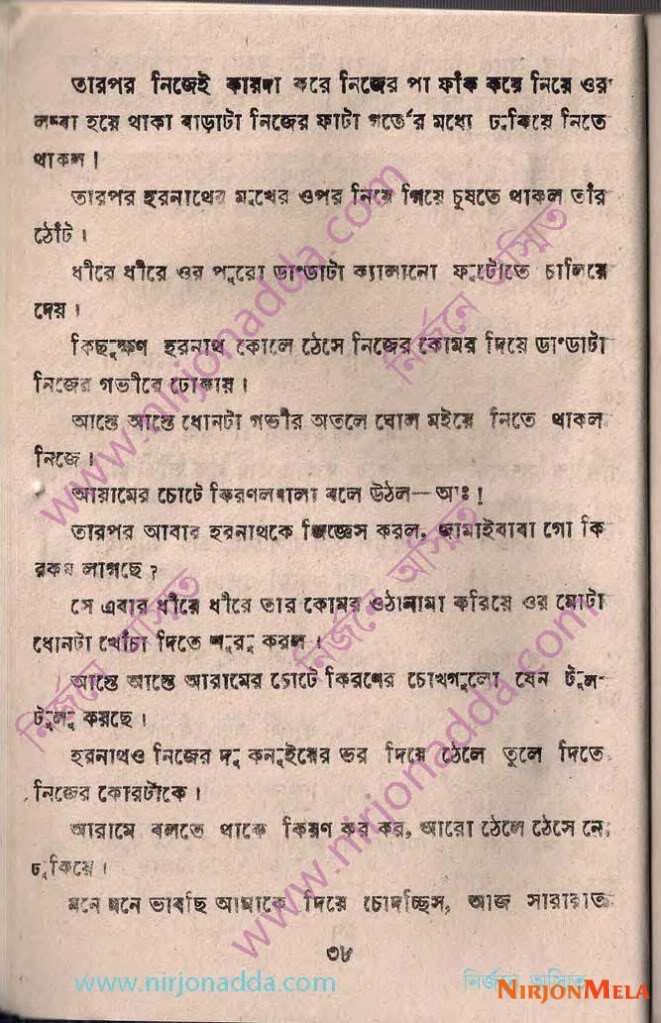 তারপর নিজেই কায়দা করে নিজের পা ফাঁক করে নিয়ে ওর
লম্বা হয়ে থাকা বাড়াটা নিজের ফাটা গর্তের মধ্যে ঢুকিয়ে নিতে
থাকল।
তারপর হরনাথের মুখের ওপর নিয়ে গিয়ে চুষতে থাকল তাঁর
ঠোঁট।
ধীরে ধীরে ওর পুরো ডাণ্ডাটা ক্যালানো ফুটোতে চালিয়ে
দেয়।
কিছুক্ষণ হরনাথ কোলে ঠেসে নিজের কোমর দিয়ে ডাণ্ডাটা
নিজের গভীরে ঢোকায়।
আস্তে আস্তে ধোনটা গভীর অতলে ঘোল মইয়ে নিতে থাকল
নিজে।
আরামের চোটে কিরণলবালা বলে উঠল—অাঃ!
তারপর আবার হরনাথকে জিজ্ঞেস করল, জামাইবাবা গো কি
রকম লাগছে?
সে এবার ধীরে ধীরে তার কোমর ওঠানামা করিয়ে ওর মোটা
ধোনটা খোঁচা দিতে শুরু করল।
আস্তে আস্তে আরামের চোটে কিরণের চোখগুলো যেন ঢুল-
ঢুলু করছে।
হরনাথও নিজের দু কনুইয়ের ভর দিয়ে ঠেলে তুলে দিতে
নিজের কোরটাকে।
আরামে বলতে থাকে কিরণ কর কর, আরো ঠেলে ঠেসে নে,
ঢুকিয়ে।
মনে মনে ভাবছি আমাকে দিয়ে চোদাচ্ছিস, আজ সারারাত
৩৮
www.nirjonadda.com
নির্জনে অস্মিত
NIRJONMELA
www.nirjonadda.com
নির্জনে অস্মিত
নির্জনে অস্মিত
নির্জনে অস্মিত
www.nirjonadda.com